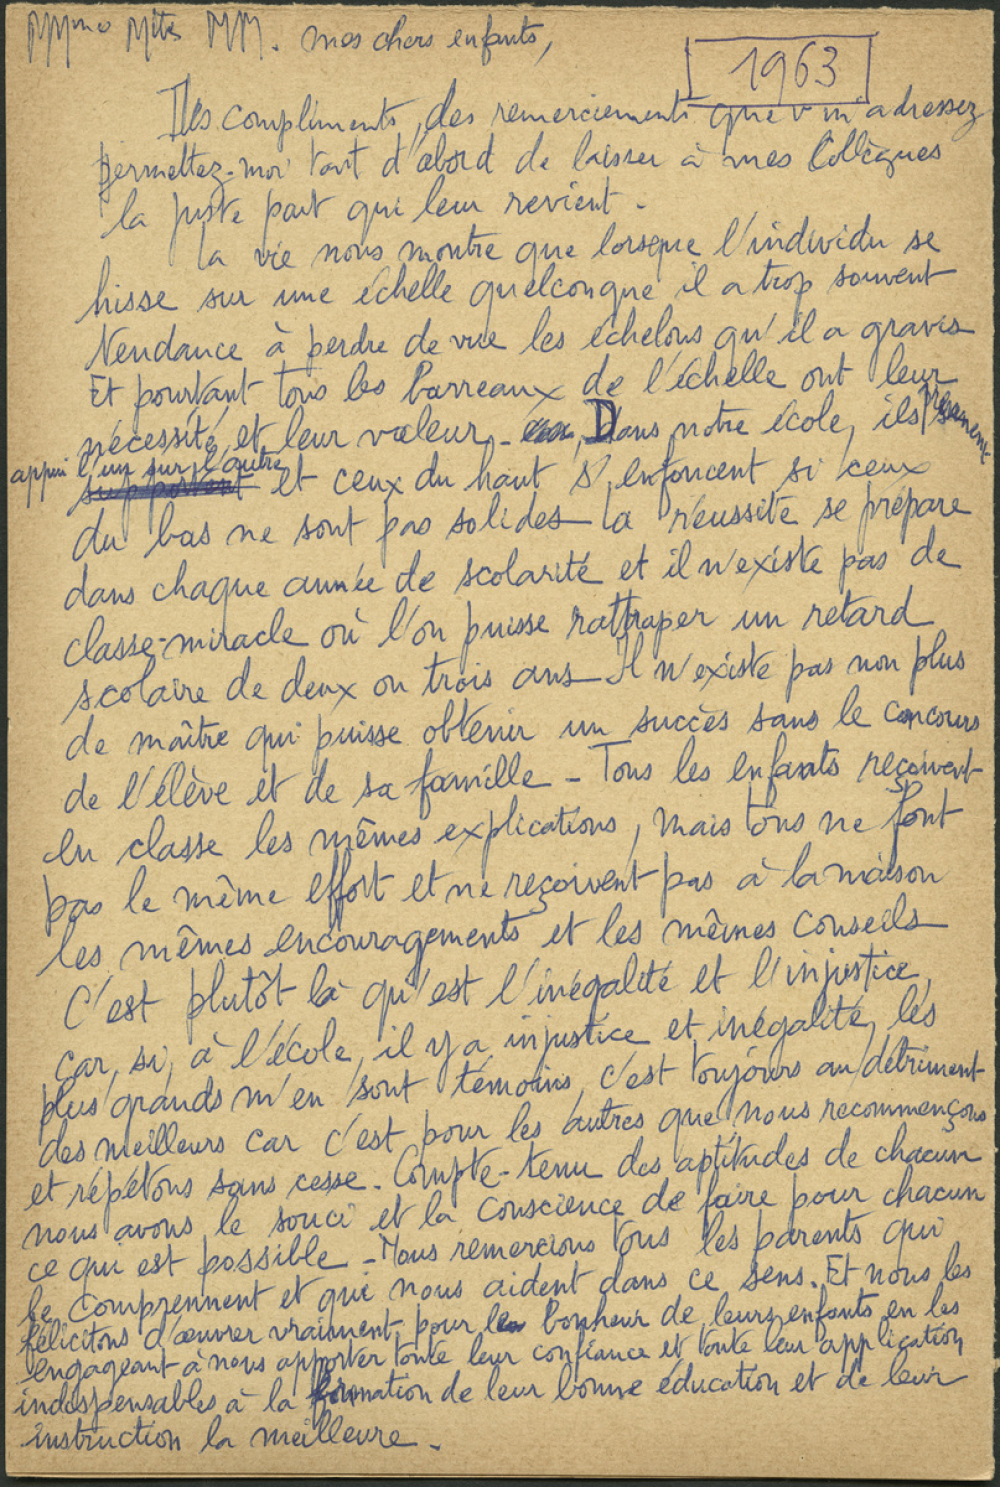 MMmes Mlles MM. mes chers enfants,
1963
Des compliments, des remerciements que v m'adressez
permettez-moi tout d'abord de laisser à mes Collègues
la juste part qui leur revient.
La vie nous montre que lorsque l'individu se
hisse sur une échelle quelconque il a trop souvent
tendance à perdre de vue les échelons qu'il a gravis
Et pourtant tous les barreaux de l'échelle ont leur
nécessité et leur valeur. Dans notre école, ils prennent
appui l'un sur l'autre
supportent et ceux du haut s'enfoncent si ceux
du bas ne sont pas solides. La réussite se prépare
dans chaque année de scolarité et il n'existe pas de
classe-miracle où l'on puisse rattraper un retard
scolaire de deux ou trois ans. Il n'existe pas non plus
de maître qui puisse obtenir un succès sans le concours
de l'élève et de sa famille - Tous les enfants reçoivent
en classe les mêmes explications, mais tous ne font
pas le même effort et ne reçoivent pas à la maison
les mêmes encouragements et les mêmes conseils
C'est plutôt là qu'est l'inégalité et l'injustice,
car, si, à l'école, il y a injustice et inégalité, les
plus grands m'en sont témoins, c'est toujours au détriment
des meilleurs car c'est pour les autres que nous recommençons
et répétons sans cesse. Compte-tenu des aptitudes de chacun
nous avons le souci et la conscience de faire pour chacun
ce qui est possible - Nous remercions tous les parents qui
le comprennent et qui nous aident dans ce sens. Et nous les
félicitons d'œuvrer vraiment pour le bonheur de leurs enfants en les
engageant à nous apporter toute leur confiance et toute leur application
indispensables à la formation de leur bonne éducation et de leur
instruction la meilleure.